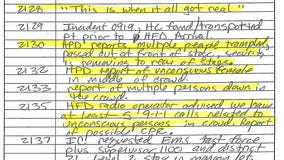 2128 "This is when it all got real"
2129 Incident 0919, HC found/transported
pt prior to HFD Arrival.
2130 HPD reports multiple people trampled,
passed out at front of stage, security
is removing to rear of stage.
2132 HPD report of unconscious female
in middle of crowd.
2133 report of multiple persons down in
the crowd.
2135 HFD radio operator advised we have
at least 5 911 calls related to
unconscious persons in crowd, report
of possible CPR.
2137 IC requested EMS task force
plus supervisor